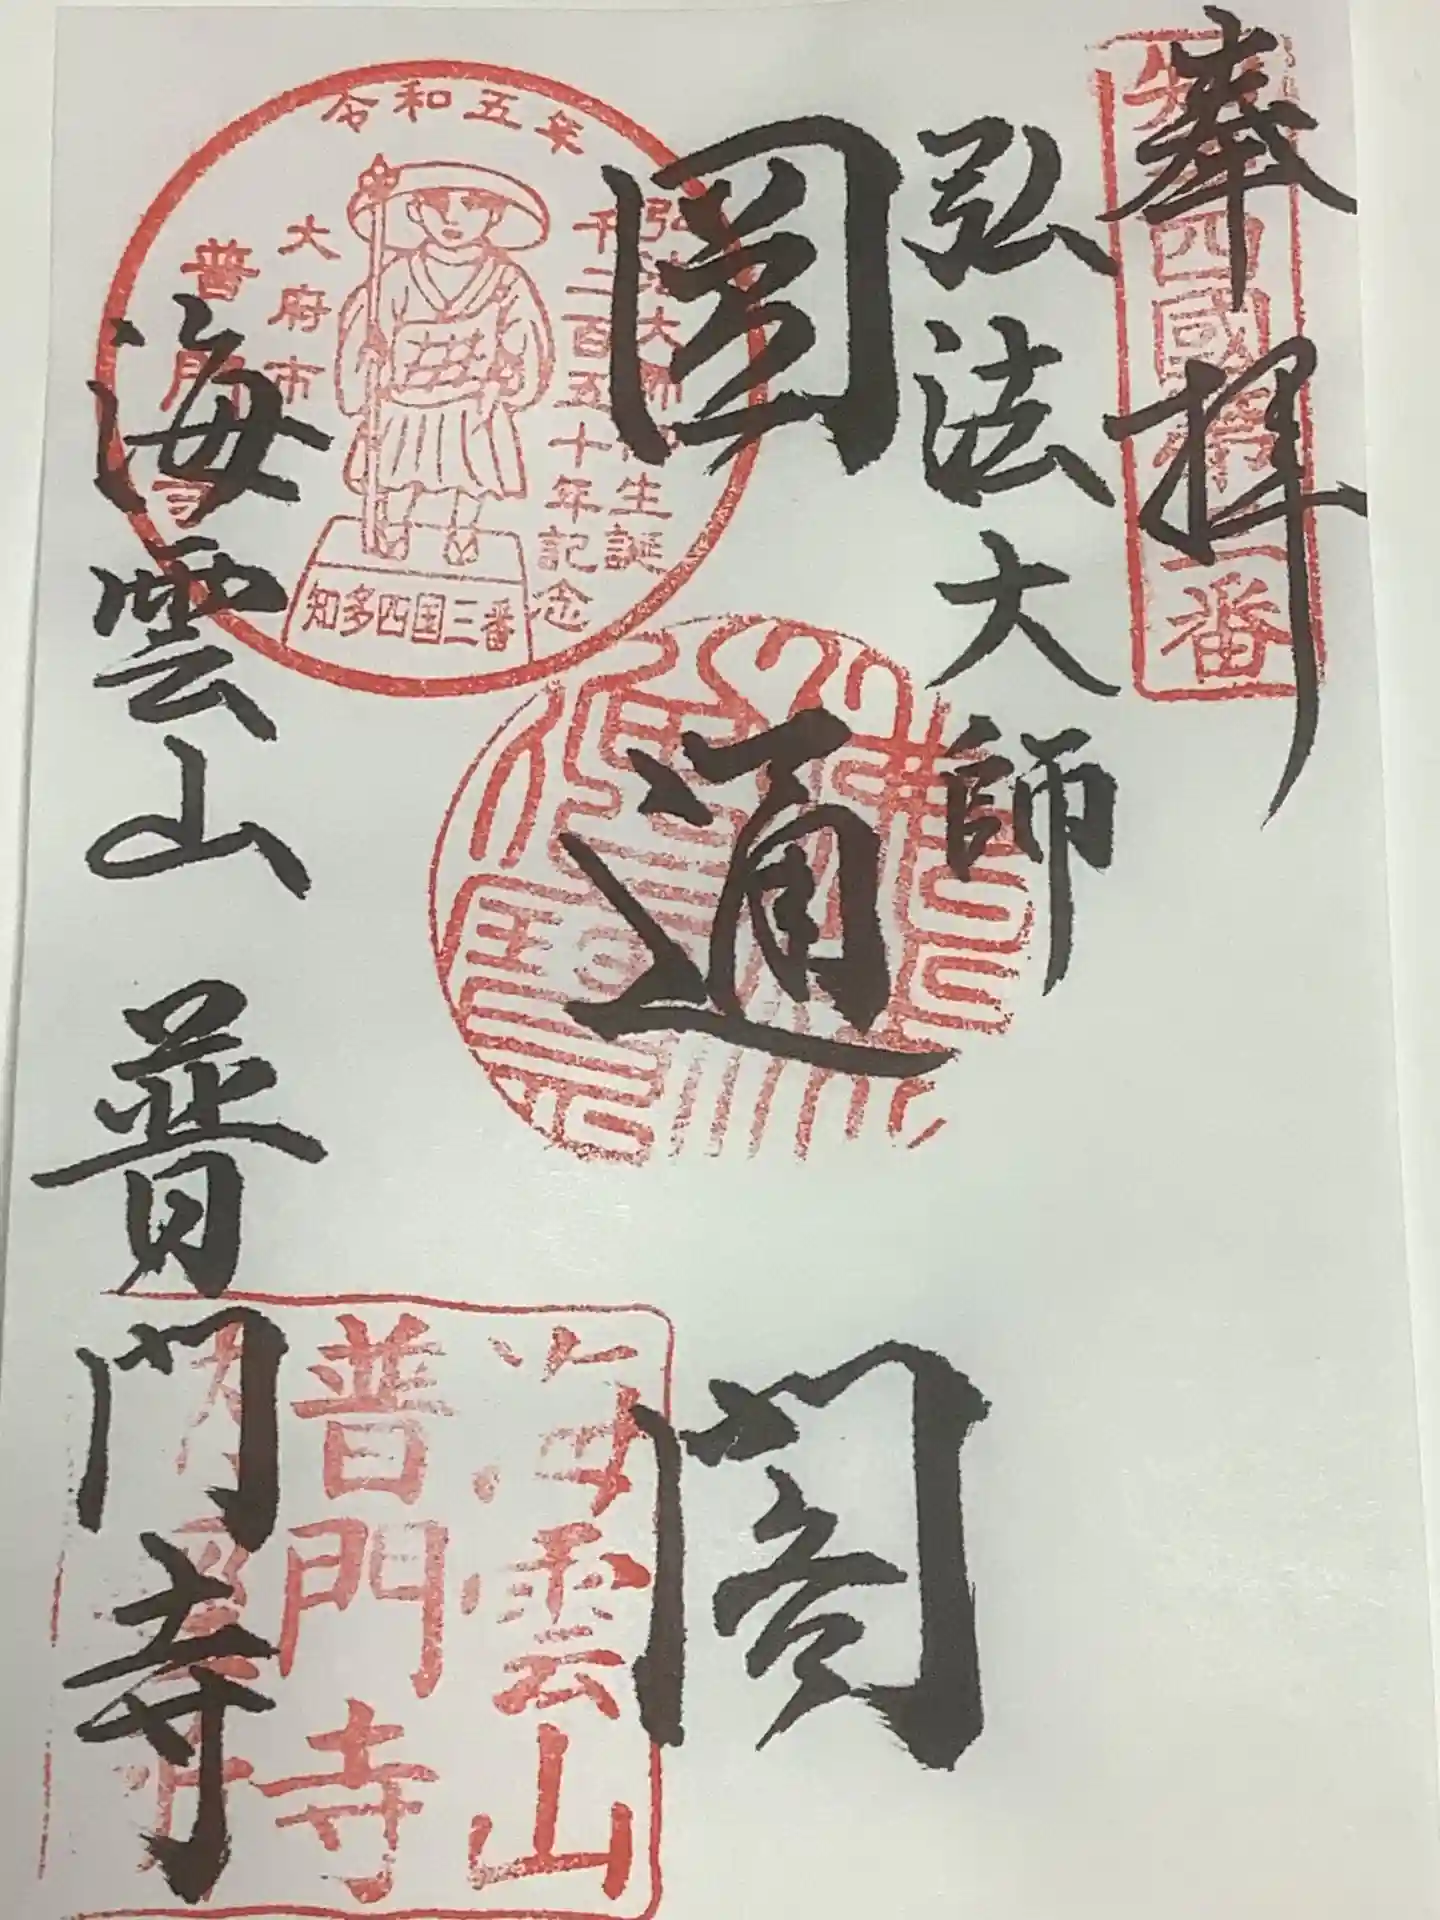 奉拝
弘法大師
圓通閣
海雲山 普門寺
令和五年
弘法大師御生誕
千二百五十年記念
大府市
普門寺
知多四国三番
海雲山
普門寺